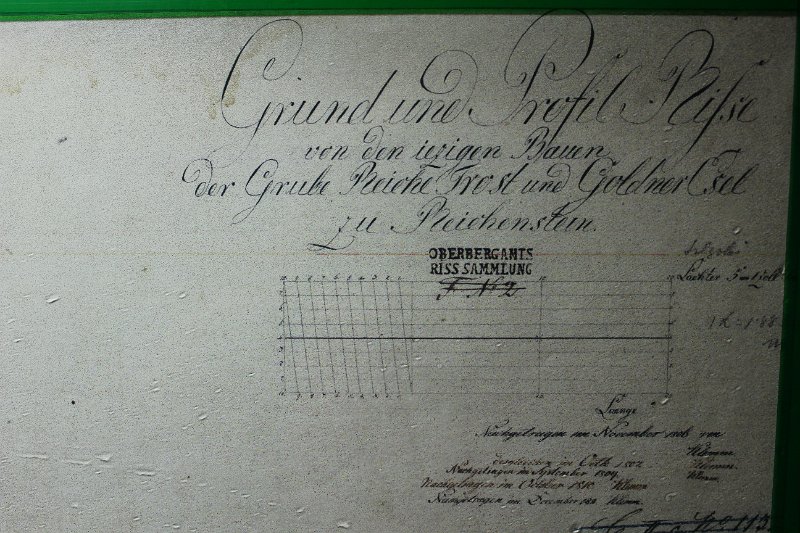 Grund und Profil Risse
von den iezigen Bauen
der Grube Reiche Trost und Goldner Esel
zu Reichenstein.
OBERBERGAMTS
RISS SAMMLUNG
F. No 2
Lachter
Laenge
Nachgetragen im November 1806 von
Klemm.
desgleichen im 1807 Klemm.
Nachgetragen im September 1809. Klemm.
Nachgetragen im October 1810. Klemm
Nachgetragen im December 181 Klemm.
No 113